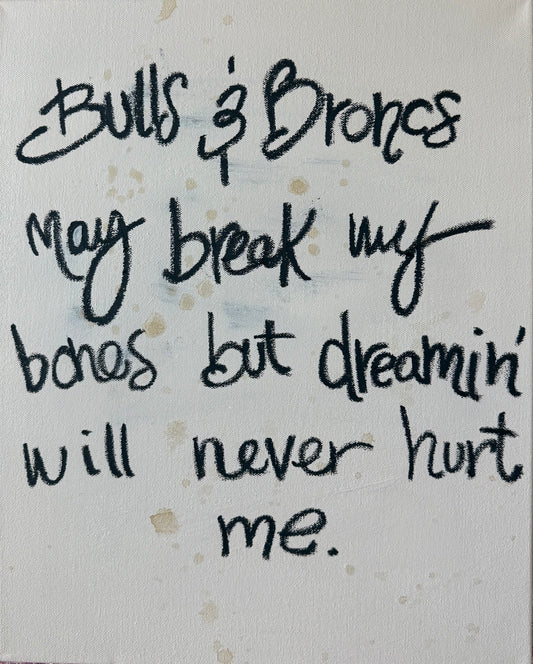 Bulls & Broncs
May break my
bones but dreamin'
will never hurt
me.